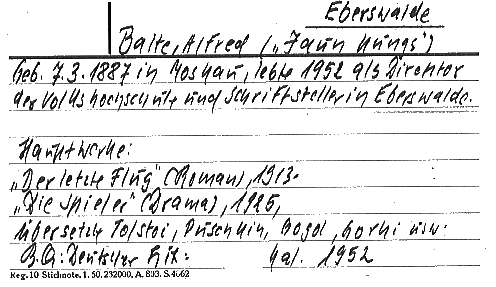 Eberswalde
Balte, Alfred („Jaun Jungs")
Geb. 7.3.1887 in Moskau, lebte 1952 als Direktor
der Volkshochschule und Schriftsteller in Eberswalde.
Hauptwerke:
„Der letzte Flug" (Roman), 1913.
„Die Spieler" (Drama), 1925,
übersetzte Tolstoi, Puschkin, Gogol, Gorki usw.
B.Q: Deutscher Lit.- Kal. 1952
Reg. 10 Stichnote. 1. 50. 232000, A. 893. S. 4662